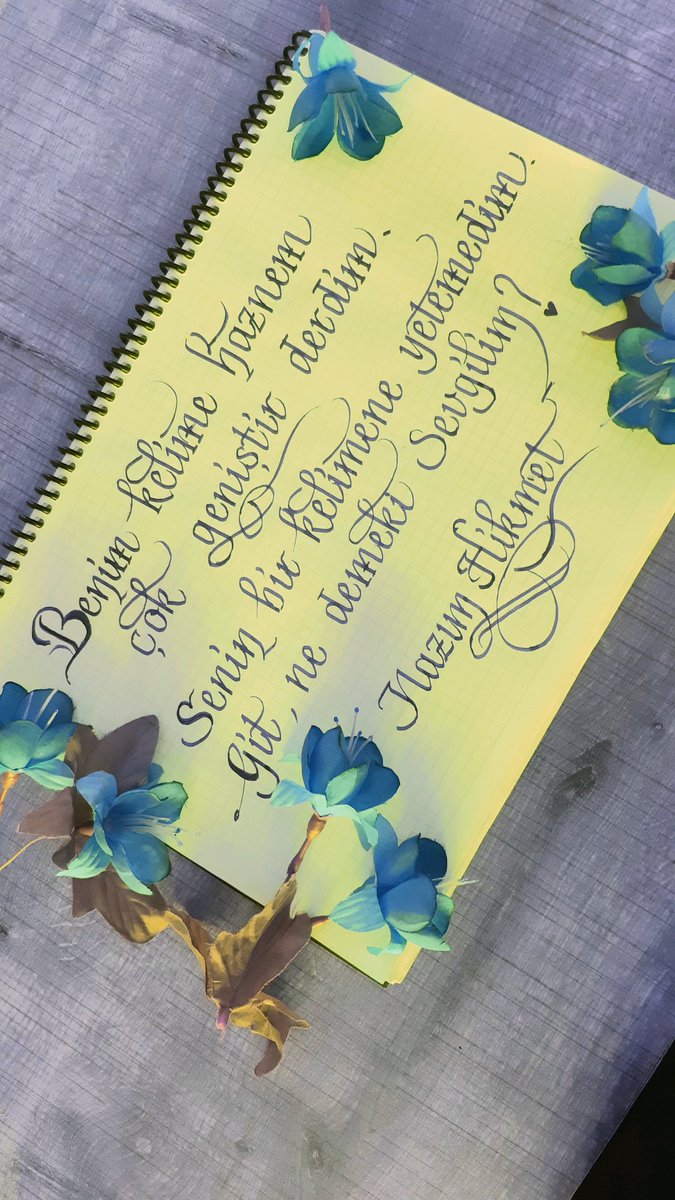 Benim kelime haznem
çok geniştir derdim.
Senin bir kelimene yetemedim.
Git, ne demeki Sevgilim?
Nazım Hikmet